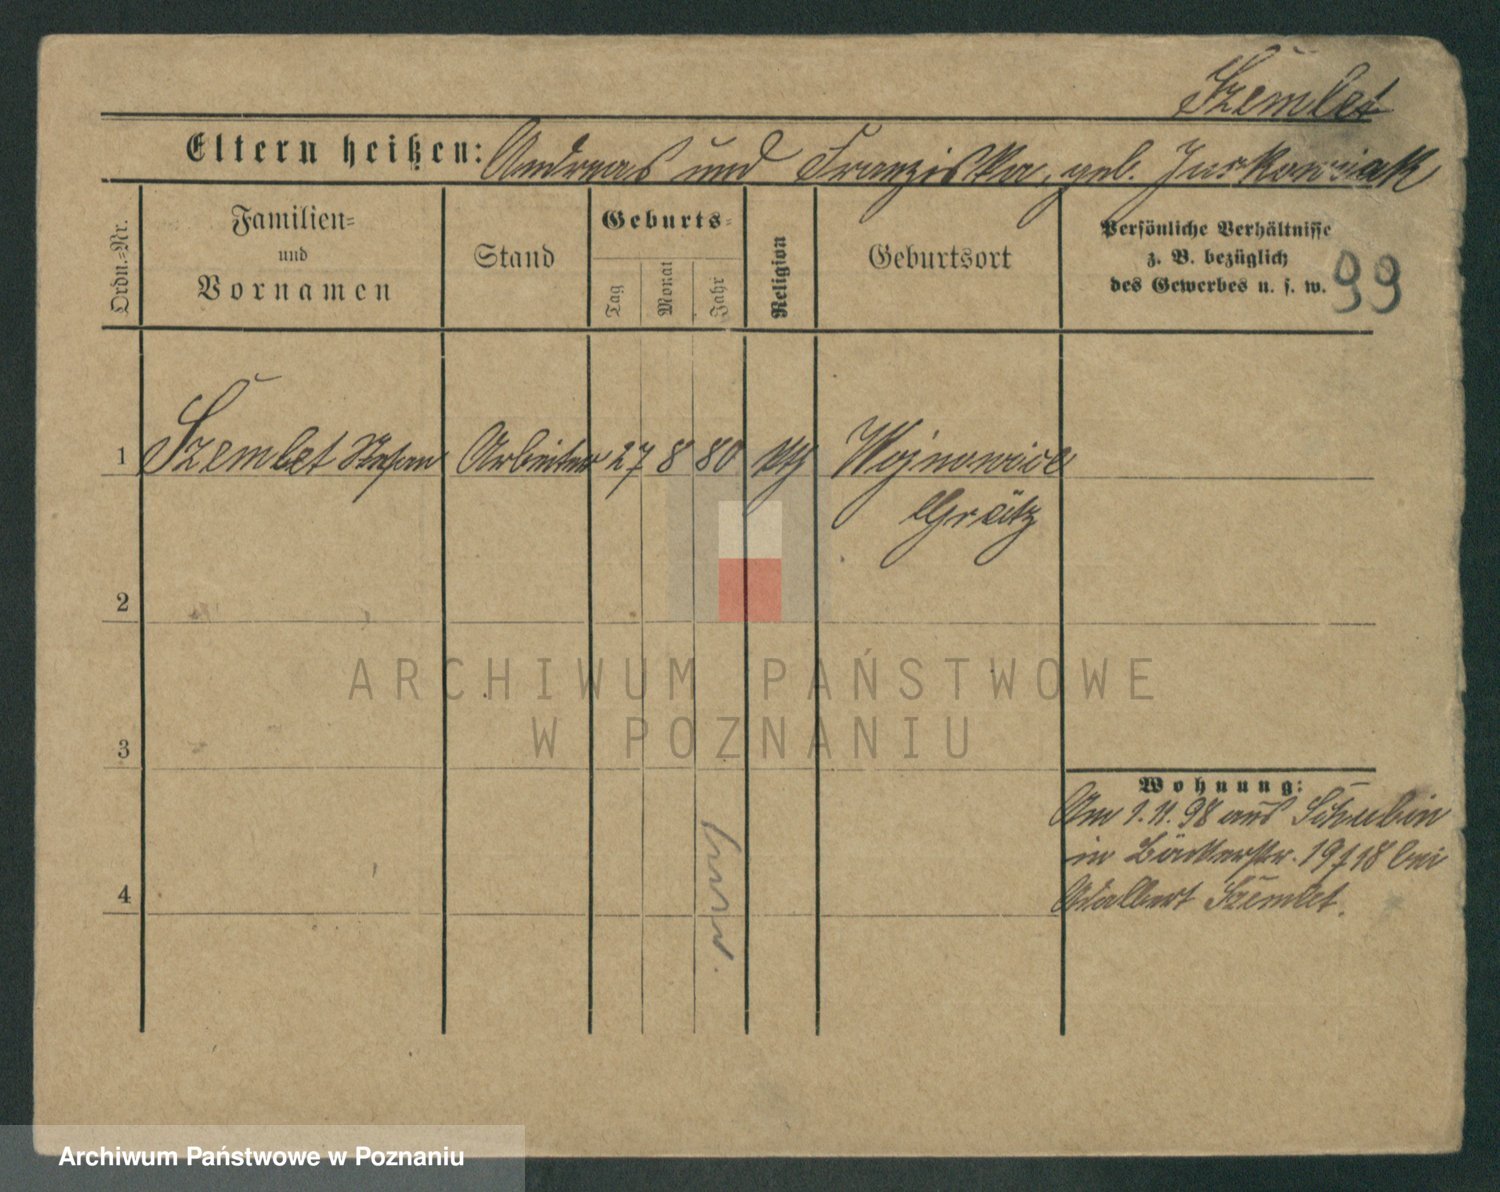 Szemlet
Eltern heißen: Andreas und Franziska, geb. Jurkowiak
Ordn.=Nr.
Familien=
und
Vornamen
Stand
Geburts=
Tag
Monat
Jahr
Religion
Geburtsort
Persönliche Verhältnisse
z. B. bezüglich
des Gewerbes u. s. w.
99
1 Szemlet Stefan Arbeiter 27 8 80 Wojnowice
Grätz
2
3
4
ARCHIWUM PAŃSTWOWE
W POZNANIU
Wohnung:
Am 1.11.98 aus Schubin
in Bäckerstr. 17/18 bei
Adalbert Szemlet.
Archiwum Państwowe w Poznaniu